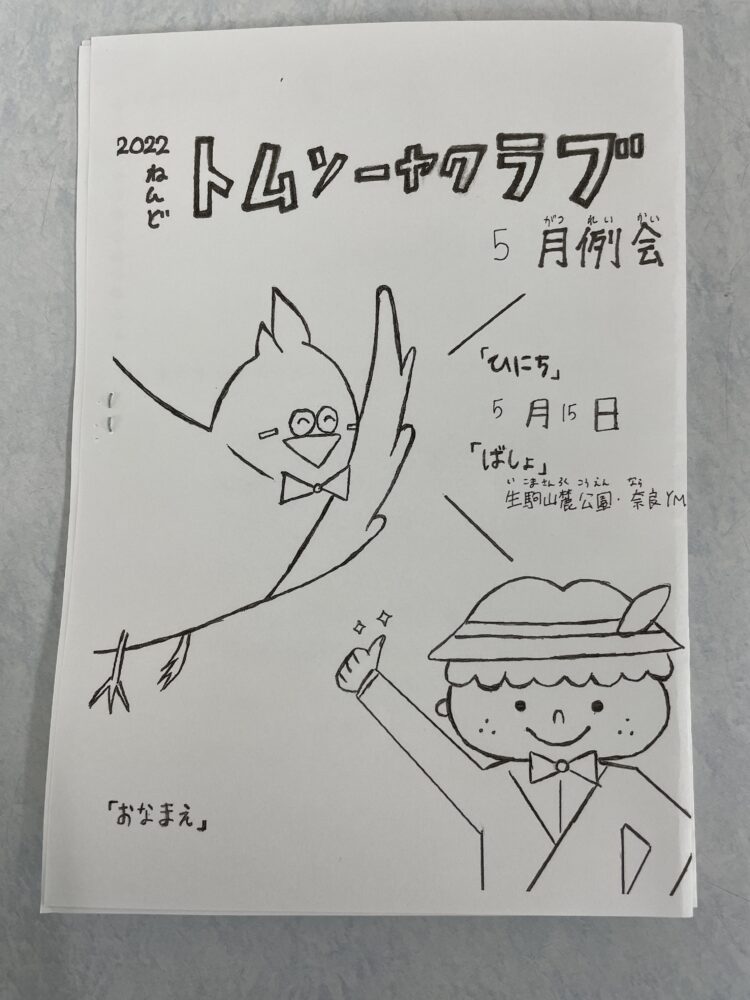 2022
ねんど
トムソーヤクラブ
がつ れい かい
5 月例会
「ひにち」
5 月 15 日
「ばしょ」
いこまさんろくこうえん なら
生駒山麓公園・奈良YM
「おなまえ」